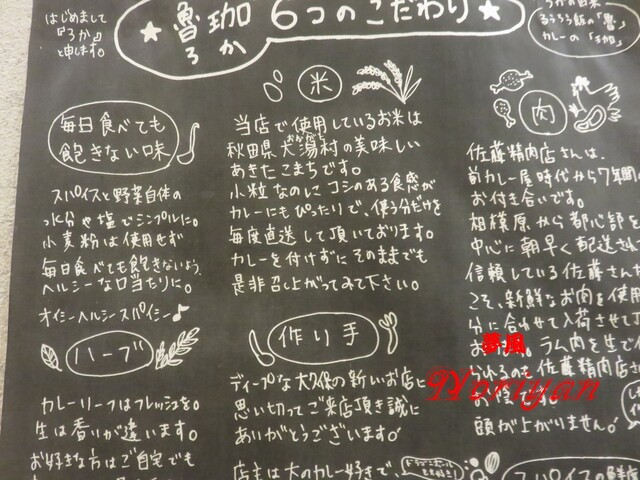 はじめまして
『ろか』
と申します。
★ 魯珈 6つのこだわり ★
ろか
るうろう飯の「魯」
カレーの「珈」
毎日食べても
飽きない味
スパイスと野菜自体の
水分や塩でシンプルに。
小麦粉は使用せず
毎日食べても飽きないよう、
ヘルシーな口当たりに。
オイシーヘルシースパイシー♪
ハーブ
カレーリーフはフレッシュを。
生は香りが違います。
お好きな方はご自宅でも
米
当店で使用しているお米は
秋田県大潟村の美味しい
おおがた
あきたこまちです。
小粒なのにコシのある食感が
カレーにもぴったりで、使う分だけを
毎度直送して頂いております。
カレーを付けずにそのままでも
是非召し上がってみて下さい。
作り手
ディープな大久保の新しいお店に
思い切ってご来店頂き誠に
ありがとうございます♂
店主は大のカレー好きで、
肉
佐藤精肉店さんは、
前カレー屋時代から7年間の
お付き合いです。
相模原から都心部を
中心に朝早く配送され
信頼している佐藤さん
こそ、新鮮なお肉を使用
分に合わせて入荷させて
ラム肉を生で
られるのも佐藤精肉店さ
頭が上がりません。
スパイスの
夢風
Noriyan